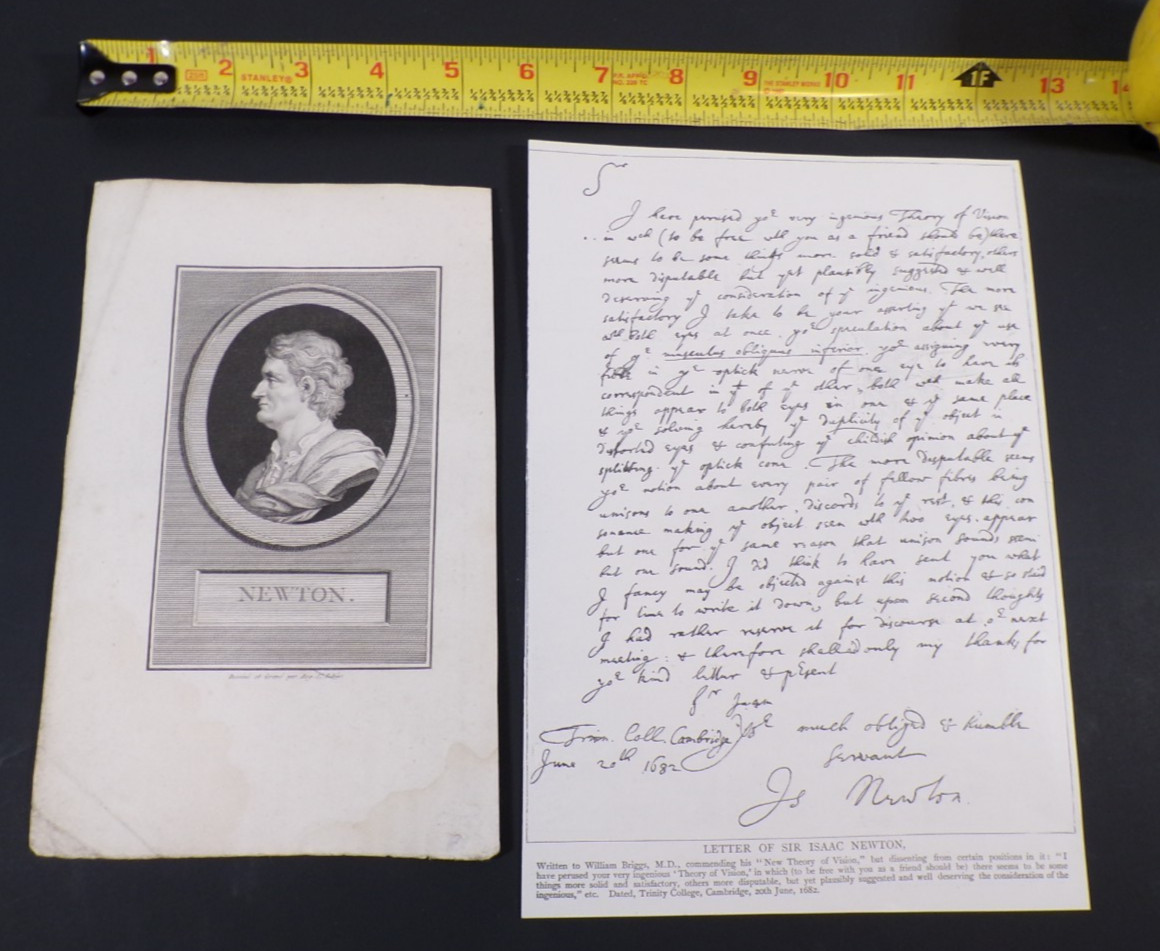 1 2 3 4 5 6 7 8 9 10 11 1F 13 14
STANLEY®
NEWTON.
Sr
I have perused yor very ingenious Theory of Vision
in wch (to be free wth you as a friend should be) there
seems to be some things more solid & satisfactory, others
more disputable but yet plausibly suggested & well
deserving ye consideration of ye ingenious. The more
satisfactory I take to be your asserting yt we see
wth both eyes at once, yor speculation about ye use
of ye musculus obliquus inferior, yor assigning every
fibre in ye optick nerve of one eye to have its
correspondent in yt of ye other, both wch make all
things appear to both eyes in one & ye same place
& yor solving hereby ye duplicity of ye object in
distorted eyes & confuting ye childish opinion about ye
splitting ye optick cone. The more disputable seems
yor notion about every pair of fellow fibres being
unisons to one another, discords to ye rest, & this con
sonance making ye object seen wth two eyes appear
but one for ye same reason that unison sounds seem
but one sound. I did think to have sent you what
I fancy may be objected against this notion & so staid
for time to write it down, but upon second thoughts
I had rather reserve it for discourse at or next
meeting: & therefore shall add only my thanks for
yor kind letter & present
Sr I am
Trin. Coll. Cambridge yor much obliged & humble
June 20th 1682 Servant
Is Newton.
LETTER OF SIR ISAAC NEWTON,
Written to William Briggs, M.D., commending his "New Theory of Vision," but dissenting from certain positions in it: "I
have perused your very ingenious 'Theory of Vision,' in which (to be free with you as a friend should be) there seems to be some
things more solid and satisfactory, others more disputable, but yet plausibly suggested and well deserving the consideration of the
ingenious," etc. Dated, Trinity College, Cambridge, 20th June, 1682.